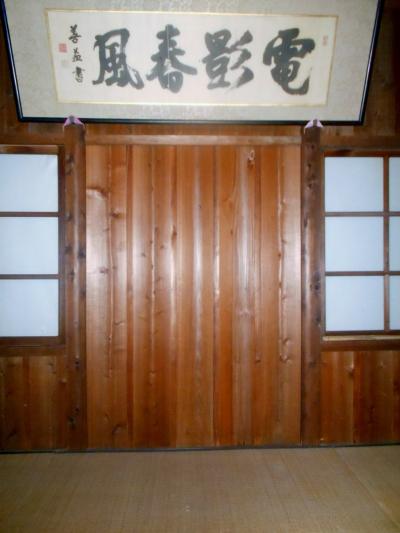 電影春風
善益書